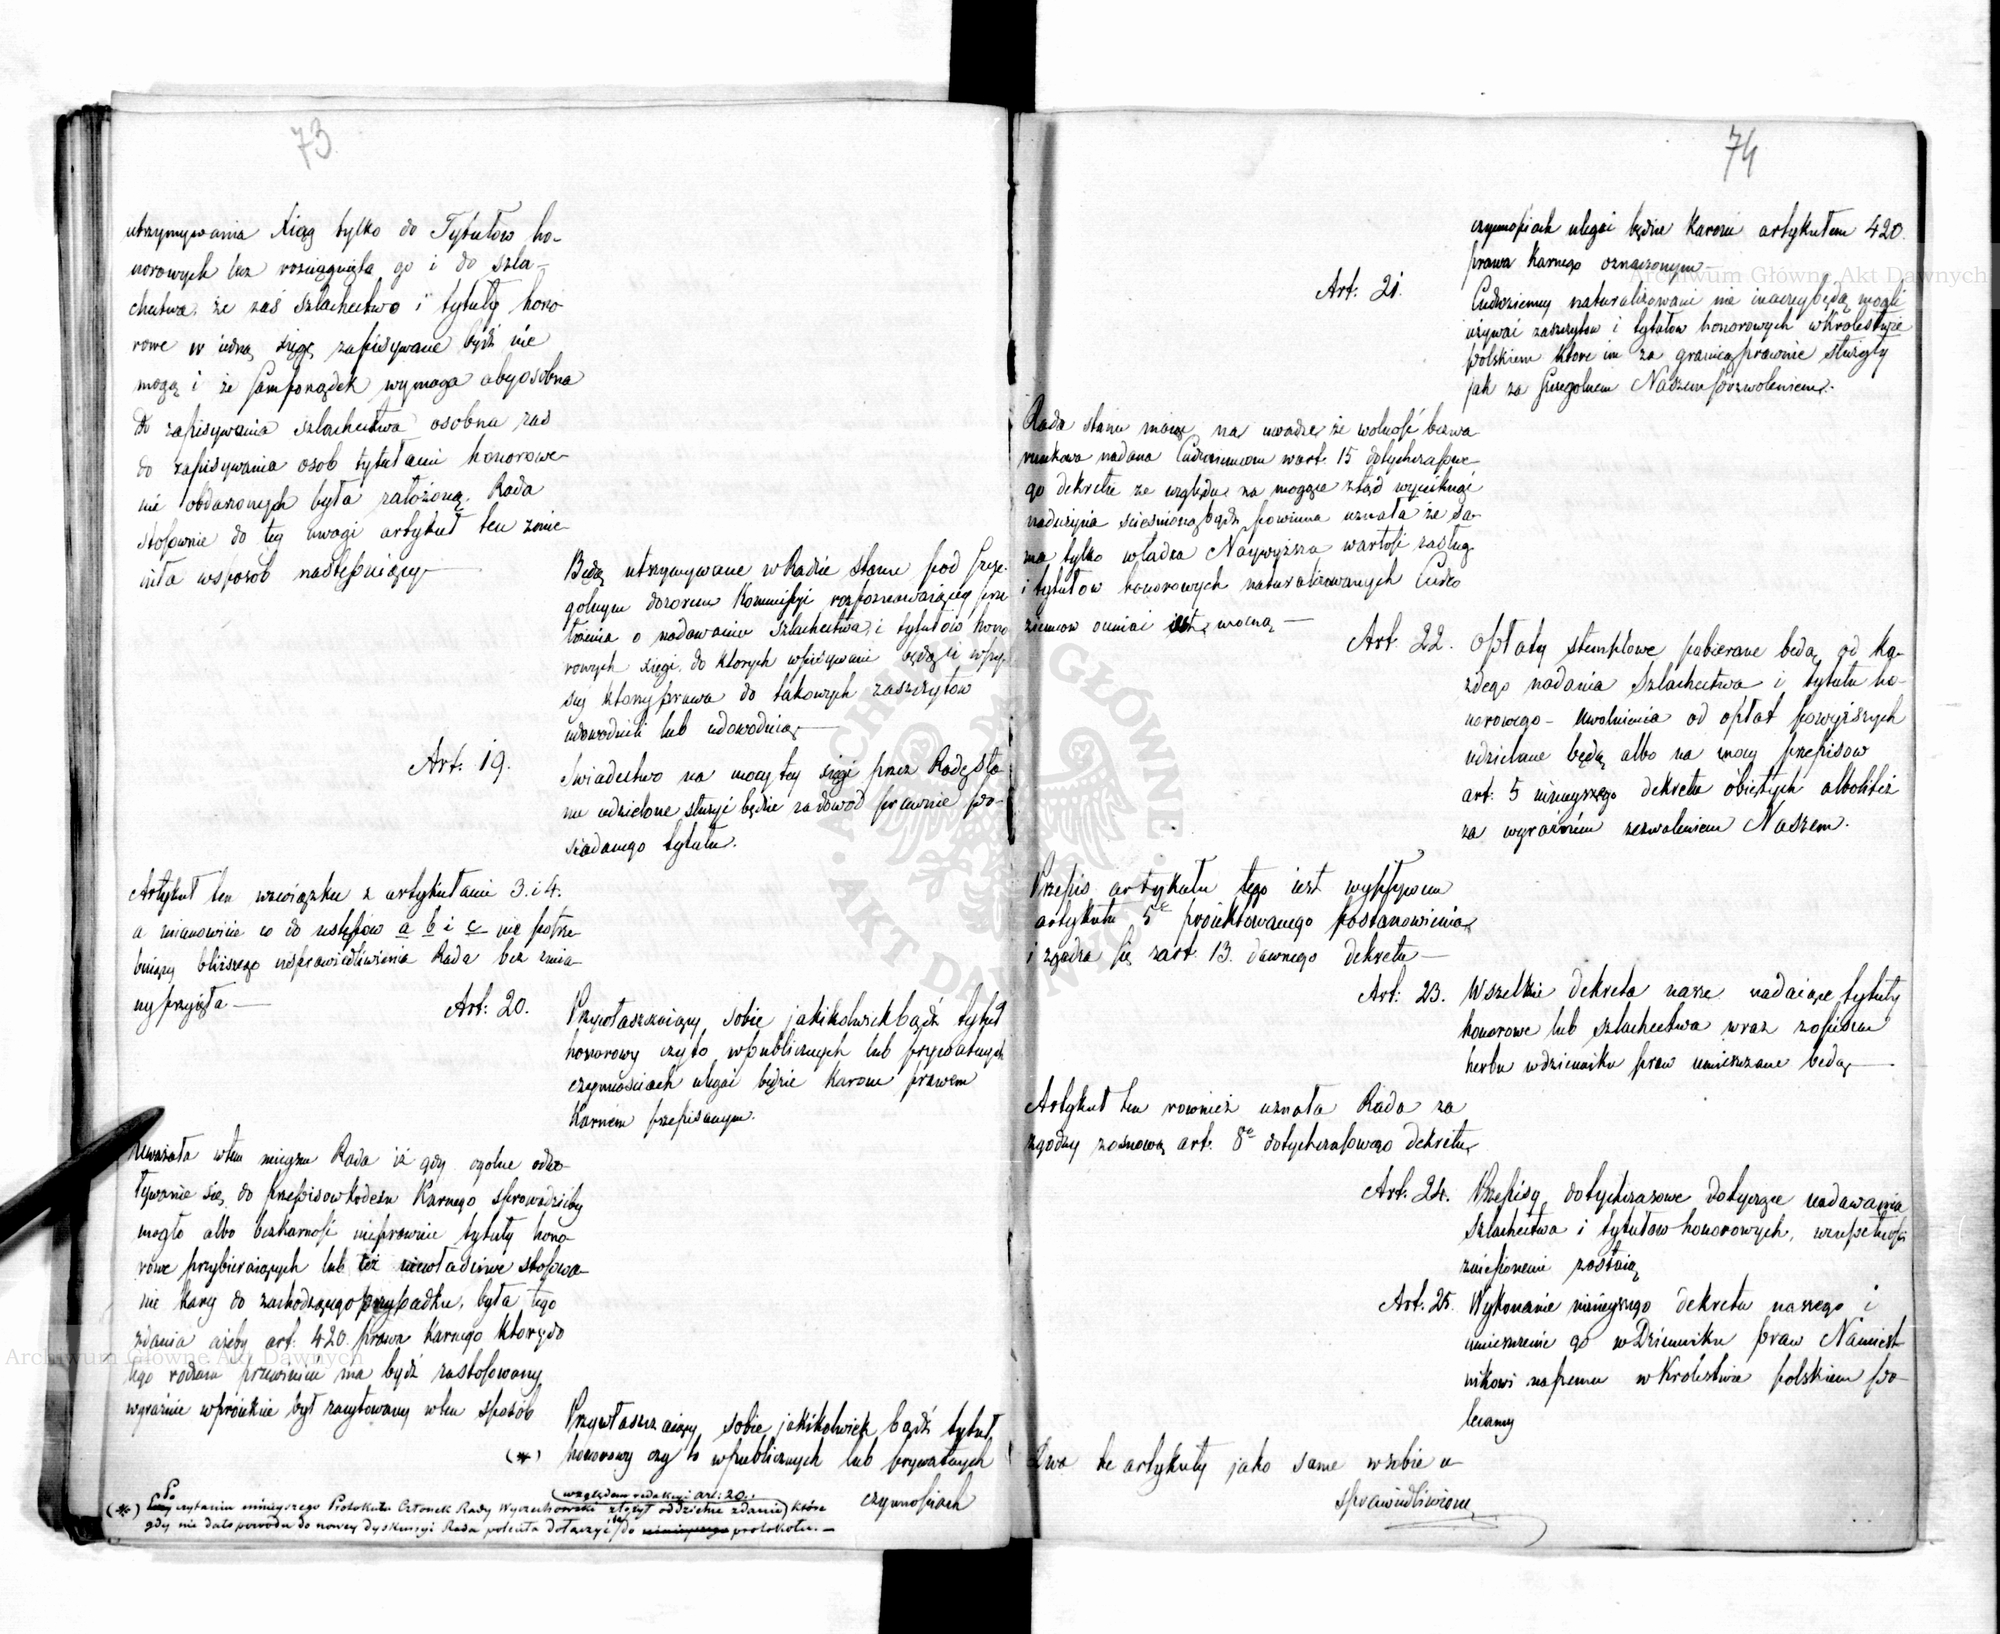 73
utrzymywania Xiąg tylko do Tytułów ho-
norowych lecz rozciągnęła go i do szla-
chectwa, że zaś szlachectwo i tytuły hono
rowe w iedną xięgę zapisywane bydź nie
mogą i że sam porządek wymaga aby osobna
do zapisywania szlachectwa osobna zaś
do zapisywania osob tytułami honorowe-
mi obdarzonych była założoną. Rada
stosownie do tey uwagi artykuł ten zmie-
niła wsposób następuiący
Będą utrzymywane w Radzie Stanu pod szcze-
golnym dozorem Kommissyi rozpoznawaiącey prze
łożenia o nadawanie szlachectwa i tytułów hono
rowych xięgi, do ktorych wpisywani będą ci wszy
scy ktorzy prawa do takowych zaszczytów
udowodnili lub udowodnią
Art. 19.
Swiadectwo na mocy tey xięgi przez Radę sta-
nu udzielone służyć będzie za dowód prawnie po-
siadanego tytułu.
Artykuł ten wzwiązku z artykułami 3. i 4.
a mianowicie co do ustępów a b i c nie potrze
buiący bliższego usprawiedliwienia Rada bez zmia-
ny przyięła
Art. 20.
Przywłaszczaiący sobie jakikolwiek bądź tytuł
honorowy czy to wpublicznych lub prywatnych
czynnościach ulegać będzie karom prawem
Karnem przepisanym.
Uważała wtem mieyscu Rada iż gdy ogolne odwo-
ływanie się do przepisow kodexu Karnego sprowadzićby
mogło albo bezkarność nieprawnie tytuły hono-
rowe przybieraiących lub też niewłaściwe stosowa-
nie kary do zachodzącego przypadku, była tego
zdania ażeby art. 420. prawa Karnego ktory do
tego rodzaiu przewinień ma bydź zastosowany,
wyraźnie wproiekcie był zacytowany wten sposób
Przywłaszczaiący sobie jakikolwiek bądź tytuł
(*) honorowy czy to wpublicznych lub prywatnych
czynnościach
względem redakcyi art: 20.
(*) Po czytaniu ninieyszego Protokułu Członek Rady Wyczechowski złożył oddzielne zdanie które
gdy nie dało powodu do nowey dyskussyi Rada poleciła dołączyć do ninieyszego protokułu.
74
czynnościach ulegać będzie karom artykułem 420.
prawa Karnego oznaczonym
Art. 21.
Cudzoziemcy naturalizowani nie inaczey będą mogli
używać zaszczytow i tytułow honorowych w Krolestwie
Polskiem ktore im za granicą prawnie służyły
jak za szczegolnem Naszem pozwoleniem.
Rada Stanu maiąc na uwadze że wolność bezwa-
runkowa nadana Cudzoziemcom w art. 15 dotychczasowe-
go dekretu ze względu na mogące ztąd wyniknąć
nadużycia ścieśnioną bydź powinna uznała że sa-
ma tylko władza Naywyższa wartość zasług
i tytułow honorowych naturalizowanych Cudzo
ziemcow ocenić iest w mocną
Art. 22.
Opłaty stemplowe pobierane będą od ka-
żdego nadania Szlachectwa i tytułu ho-
norowego - Uwolnienia od opłat powyższych
udzielane będą albo na mocy przepisow
art. 5 ninieyszego dekretu obiętych albo też
za wyraźnem zezwoleniem Naszem.
Przepis artykułu tego iest wypływem
artykułu 5º proiektowanego postanowienia
i zgadza się z art. 13. dawnego dekretu
Art. 23.
Wszelkie dekreta nasze nadaiące tytuły
honorowe lub szlachectwa wraz zopisem
herbu w dzienniku praw umieszczane będą
Artykuł ten rownież uznała Rada za
zgodny zosnową art. 8º dotychczasowego dekretu
Art. 24.
Przepisy dotychczasowe dotyczące nadawania
Szlachectwa i tytułow honorowych, w zupełności
zniesionemi zostaią
Art. 25.
Wykonanie ninieyszego dekretu naszego i
umieszczenie go w Dzienniku praw Namiest-
nikowi naszemu w Krolestwie polskiem po-
lecamy
Dwa te artykuły jako same w sobie u-
sprawiedliwione
Archiwum Główne Akt Dawnych
Archiwum Główne Akt Dawnych
ARCHIWUM GŁÓWNE AKT DAWNYCH